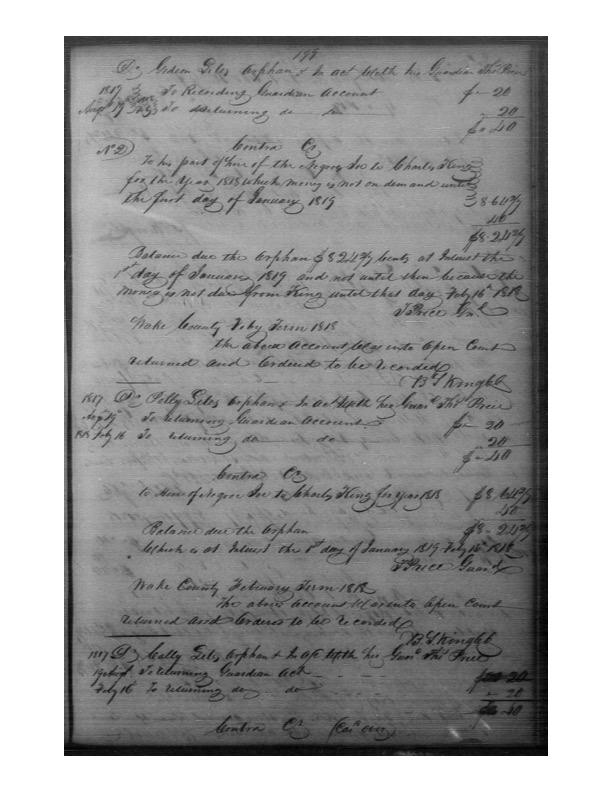 199
Dr Gideon Liles Orphan & In act With his Guardian Thos Price
1817 To Recording Guardian Account $ - 20
Augt 19 To Returning do do - 20
$0 40
No 2 Contra Cr
To his part of hire of the Negroe Joe to Charles King
for the Year 1818 which money is not on demand until
the first day of January 1819 8.64
40
$8.24
Balance due the Orphan $8.24 Cents at Interest the
1st day of January 1819 and not until then because the
money is not due from King until that day Feby 16th 1818
T Price Gn
Wake County Feby Term 1818
the above Account Was into Open Court
returned and Ordered to be recorded
B S King Clk
1817 Dr Polly Liles Orphan & In Act With her Guar Thos Price
Augt 19 To returning Guardian Account $ - 20
1818 Feby 16 To returning do do 20
$ - 40
Contra Cr
to Hire of Negroe Joe to Charles King for Year 1818 $8.64
40
Balance due the Orphan $8 - 24
Which is at Interest the 1st day of January 1819 Feby 16th 1818
T Price Guard
Wake County February Term 1818
The above Account Was into Open Court
returned and Ordered to be recorded
B S King Clk
1817 Dr Orphan & In A/c With his Guar Thos Price
19 Augt To returning Guardian Act 20
Feby 16th To returning do do - 20
- 40
Contra Cr (Car over)